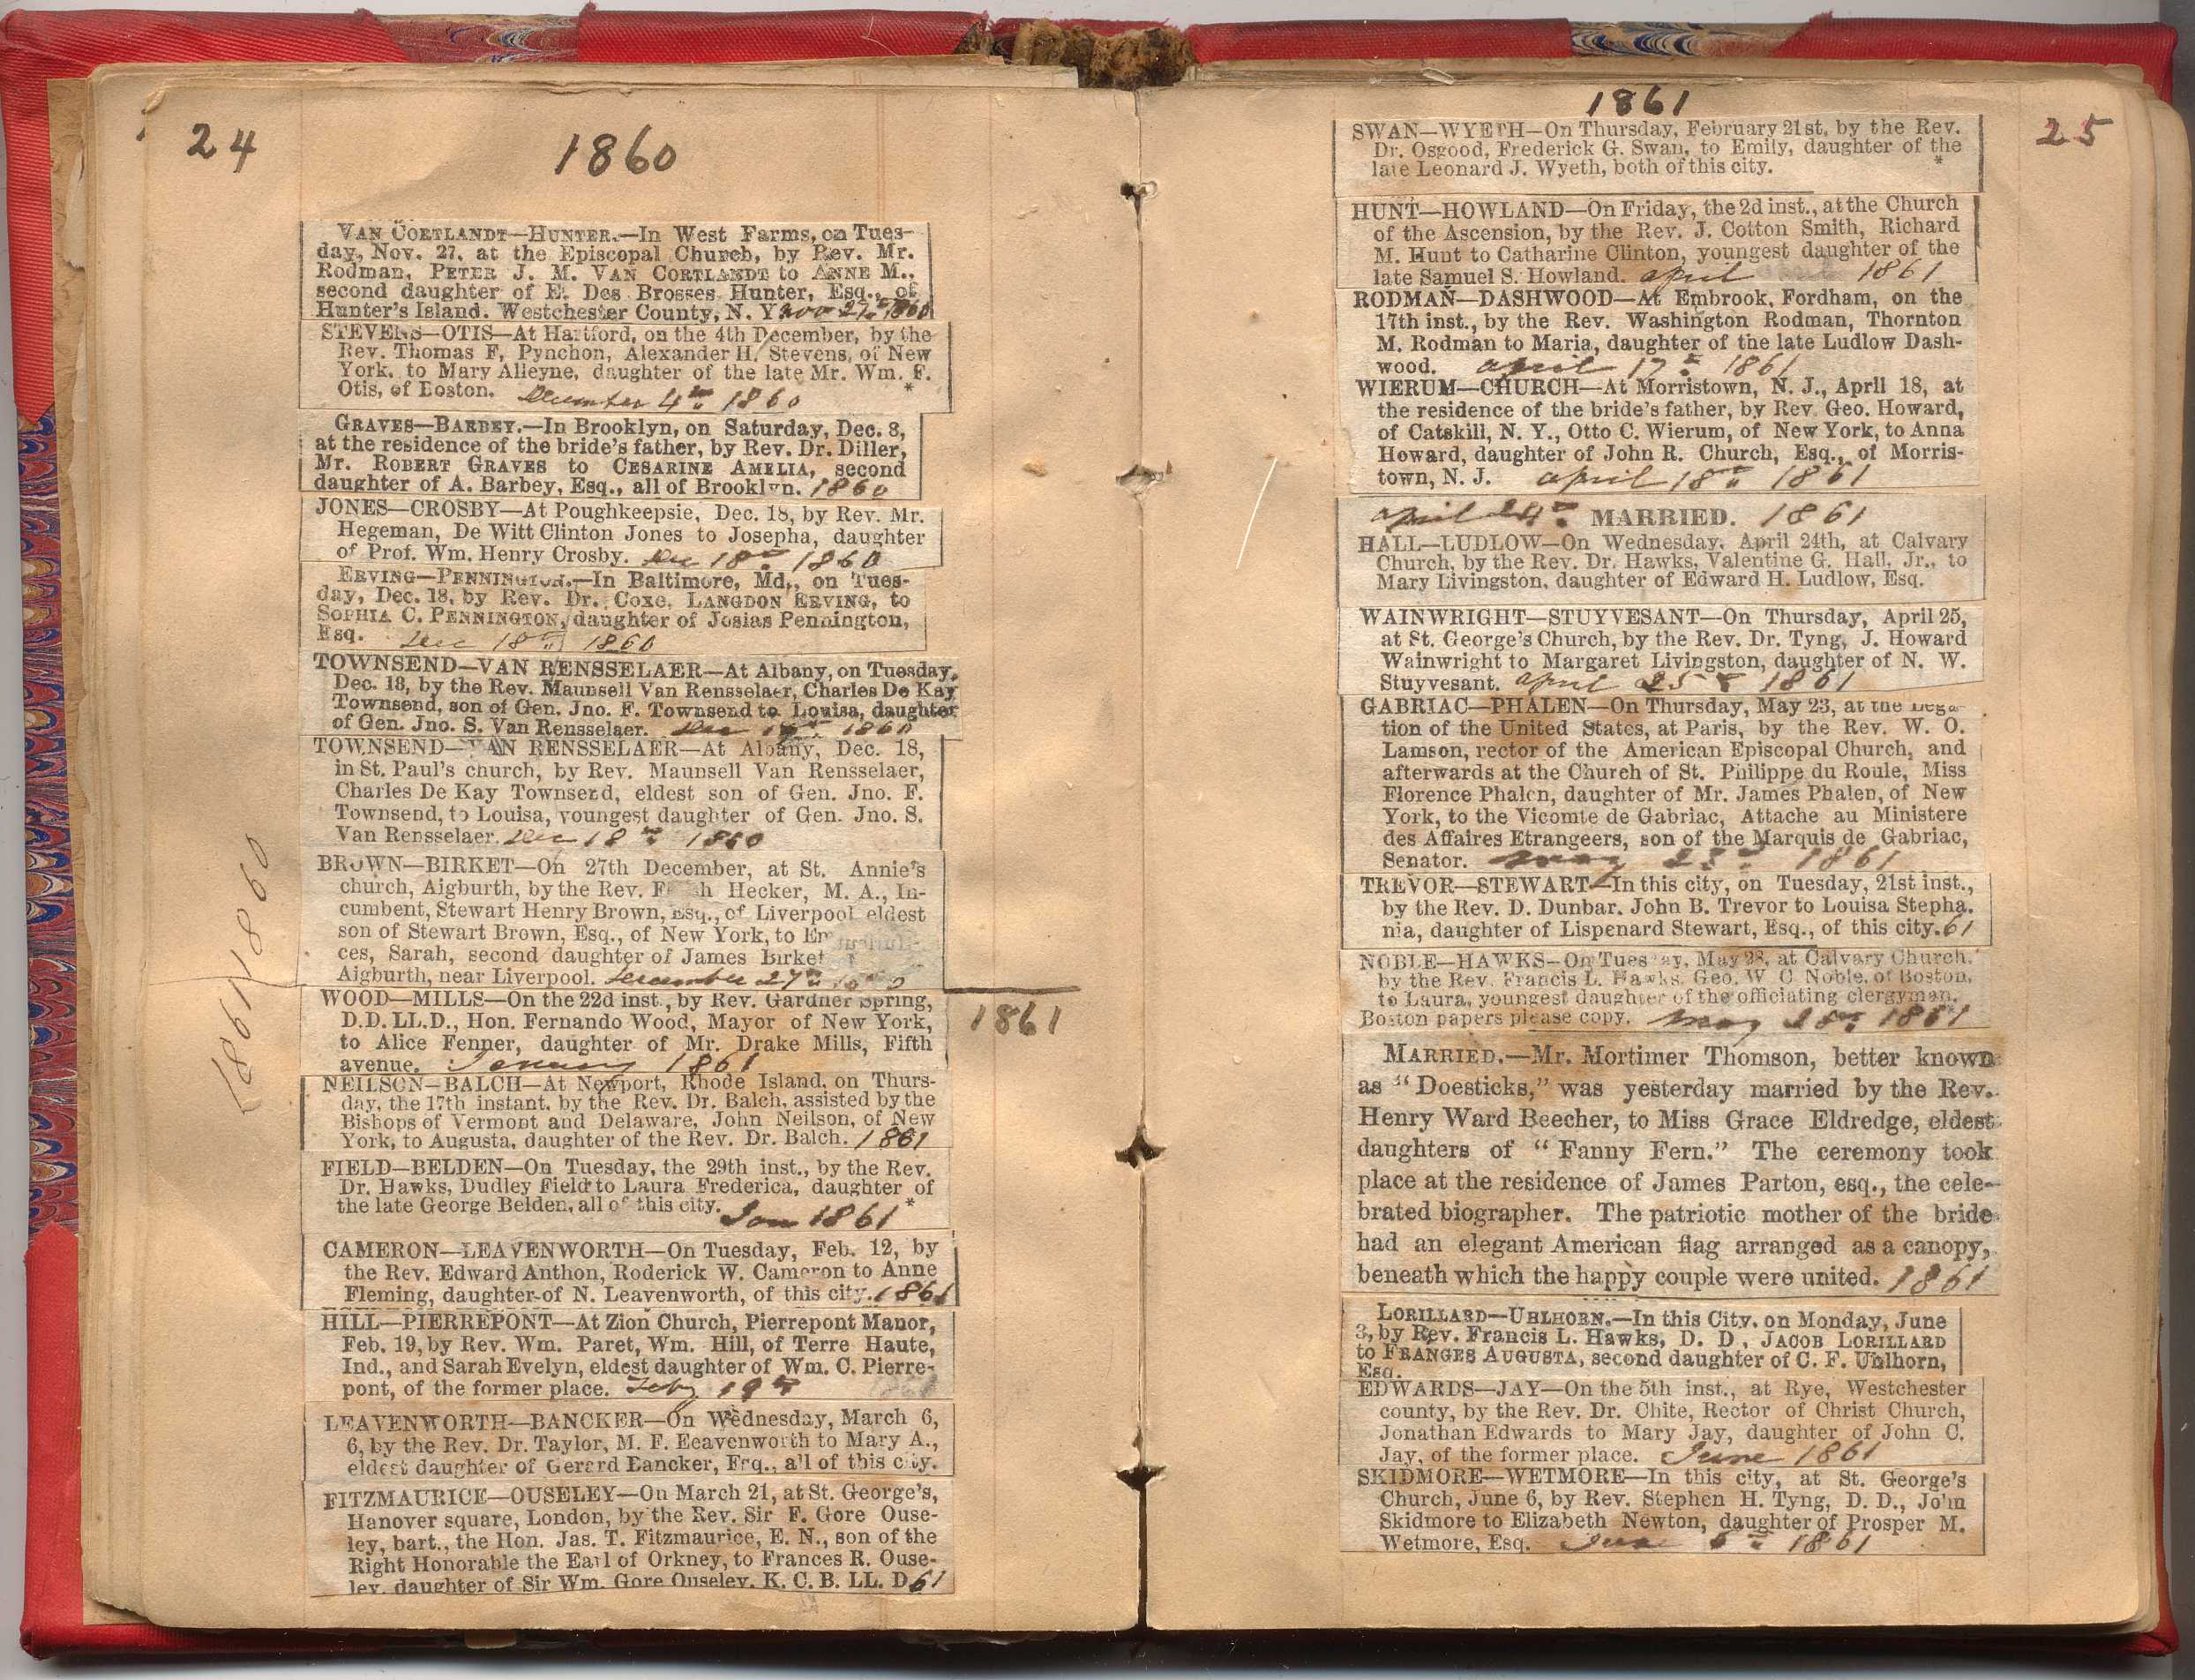 24
1860
VAN CORTLANDT—HUNTER.—In West Farms, on Tues-
day, Nov. 27, at the Episcopal Church, by Rev. Mr.
Rodman, PETER J. M. VAN CORTLANDT to ANNE M.,
second daughter of E. Des Brosses Hunter, Esq., of
Hunter's Island, Westchester County, N. Y. Nov 27th 1860
STEVENS—OTIS—At Hartford, on the 4th December, by the
Rev. Thomas F. Pynchon, Alexander H. Stevens, of New
York, to Mary Alleyne, daughter of the late Mr. Wm. F.
Otis, of Boston. December 4th 1860 *
GRAVES—BARBEY.—In Brooklyn, on Saturday, Dec. 8,
at the residence of the bride's father, by Rev. Dr. Diller,
Mr. ROBERT GRAVES to CESARINE AMELIA, second
daughter of A. Barbey, Esq., all of Brooklyn. 1860
JONES—CROSBY—At Poughkeepsie, Dec. 18, by Rev. Mr.
Hegeman, De Witt Clinton Jones to Josepha, daughter
of Prof. Wm. Henry Crosby. Dec 18th 1860
ERVING—PENNINGTON.—In Baltimore, Md., on Tues-
day, Dec. 18, by Rev. Dr. Coxe, LANGDON ERVING, to
SOPHIA C. PENNINGTON, daughter of Josias Pennington,
Esq. Dec 18th 1860
TOWNSEND—VAN RENSSELAER—At Albany, on Tuesday,
Dec. 18, by the Rev. Maunsell Van Rensselaer, Charles De Kay
Townsend, son of Gen. Jno. F. Townsend to Louisa, daughter
of Gen. Jno. S. Van Rensselaer. Dec 18th 1860
TOWNSEND—VAN RENSSELAER—At Albany, Dec. 18,
in St. Paul's church, by Rev. Maunsell Van Rensselaer,
Charles De Kay Townsend, eldest son of Gen. Jno. F.
Townsend, to Louisa, youngest daughter of Gen. Jno. S.
Van Rensselaer. Dec 18th 1860
BROWN—BIRKET—On 27th December, at St. Annie's
church, Aigburth, by the Rev. Hecker, M. A., In-
cumbent, Stewart Henry Brown, Esq., of Liverpool eldest
son of Stewart Brown, Esq., of New York, to
ces, Sarah, second daughter of James Birket
Aigburth, near Liverpool. December 27th 1860
1860
1861
1861
WOOD—MILLS—On the 22d inst., by Rev. Gardner Spring,
D.D. LL.D., Hon. Fernando Wood, Mayor of New York,
to Alice Fenner, daughter of Mr. Drake Mills, Fifth
avenue. January 1861
NEILSON—BALCH—At Newport, Rhode Island, on Thurs-
day, the 17th instant, by the Rev. Dr. Balch, assisted by the
Bishops of Vermont and Delaware, John Neilson, of New
York, to Augusta, daughter of the Rev. Dr. Balch. 1861
FIELD—BELDEN—On Tuesday, the 29th inst., by the Rev.
Dr. Hawks, Dudley Field to Laura Frederica, daughter of
the late George Belden, all of this city. Jan 1861 *
CAMERON—LEAVENWORTH—On Tuesday, Feb. 12, by
the Rev. Edward Anthon, Roderick W. Cameron to Anne
Fleming, daughter of N. Leavenworth, of this city. 1861
HILL—PIERREPONT—At Zion Church, Pierrepont Manor,
Feb. 19, by Rev. Wm. Paret, Wm. Hill, of Terre Haute,
Ind., and Sarah Evelyn, eldest daughter of Wm. C. Pierre-
pont, of the former place. Feby 19th
LEAVENWORTH—BANCKER—On Wednesday, March 6,
6, by the Rev. Dr. Taylor, M. F. Leavenworth to Mary A.,
eldest daughter of Gerard Bancker, Esq., all of this city.
FITZMAURICE—OUSELEY—On March 21, at St. George's,
Hanover square, London, by the Rev. Sir F. Gore Ouse-
ley, bart., the Hon. Jas. T. Fitzmaurice, E. N., son of the
Right Honorable the Earl of Orkney, to Frances R. Ouse-
ley, daughter of Sir Wm. Gore Ouseley, K. C. B. LL. D 61
1861
25
SWAN—WYETH—On Thursday, February 21st, by the Rev.
Dr. Osgood, Frederick G. Swan, to Emily, daughter of the
late Leonard J. Wyeth, both of this city. *
HUNT—HOWLAND—On Friday, the 2d inst., at the Church
of the Ascension, by the Rev. J. Cotton Smith, Richard
M. Hunt to Catharine Clinton, youngest daughter of the
late Samuel S. Howland. April 1861
RODMAN—DASHWOOD—At Embrook, Fordham, on the
17th inst., by the Rev. Washington Rodman, Thornton
M. Rodman to Maria, daughter of the late Ludlow Dash-
wood. April 17th 1861
WIERUM—CHURCH—At Morristown, N. J., April 18, at
the residence of the bride's father, by Rev. Geo. Howard,
of Catskill, N. Y., Otto C. Wierum, of New York, to Anna
Howard, daughter of John R. Church, Esq., of Morris-
town, N. J. April 18th 1861
April 24th MARRIED. 1861
HALL—LUDLOW—On Wednesday, April 24th, at Calvary
Church, by the Rev. Dr. Hawks, Valentine G. Hall, Jr., to
Mary Livingston, daughter of Edward H. Ludlow, Esq.
WAINWRIGHT—STUYVESANT—On Thursday, April 25,
at St. George's Church, by the Rev. Dr. Tyng, J. Howard
Wainwright to Margaret Livingston, daughter of N. W.
Stuyvesant. April 25th 1861
GABRIAC—PHALEN—On Thursday, May 23, at the Lega-
tion of the United States, at Paris, by the Rev. W. O.
Lamson, rector of the American Episcopal Church, and
afterwards at the Church of St. Philippe du Roule, Miss
Florence Phalen, daughter of Mr. James Phalen, of New
York, to the Vicomte de Gabriac, Attache au Ministere
des Affaires Etrangeers, son of the Marquis de Gabriac,
Senator. May 23d 1861
TREVOR—STEWART—In this city, on Tuesday, 21st inst.,
by the Rev. D. Dunbar, John B. Trevor to Louisa Stepha.
nia, daughter of Lispenard Stewart, Esq., of this city. 61
NOBLE—HAWKS—On Tuesday, May 28, at Calvary Church.
by the Rev. Francis L. Hawks, Geo. W. C. Noble, of Boston,
to Laura, youngest daughter of the officiating clergyman.
Boston papers please copy. May 28th 1861
MARRIED.—Mr. Mortimer Thomson, better known
as "Doesticks," was yesterday married by the Rev.
Henry Ward Beecher, to Miss Grace Eldredge, eldest
daughters of "Fanny Fern." The ceremony took
place at the residence of James Parton, esq., the cele-
brated biographer. The patriotic mother of the bride
had an elegant American flag arranged as a canopy,
beneath which the happy couple were united. 1861
LORILLARD—UHLHORN.—In this City, on Monday, June
3, by Rev. Francis L. Hawks, D. D., JACOB LORILLARD
to FRANGES AUGUSTA, second daughter of C. F. Uhlhorn,
Esq.
EDWARDS—JAY—On the 5th inst., at Rye, Westchester
county, by the Rev. Dr. Chite, Rector of Christ Church,
Jonathan Edwards to Mary Jay, daughter of John C.
Jay, of the former place. June 1861
SKIDMORE—WETMORE—In this city, at St. George's
Church, June 6, by Rev. Stephen H. Tyng, D. D., John
Skidmore to Elizabeth Newton, daughter of Prosper M.
Wetmore, Esq. June 6th 1861